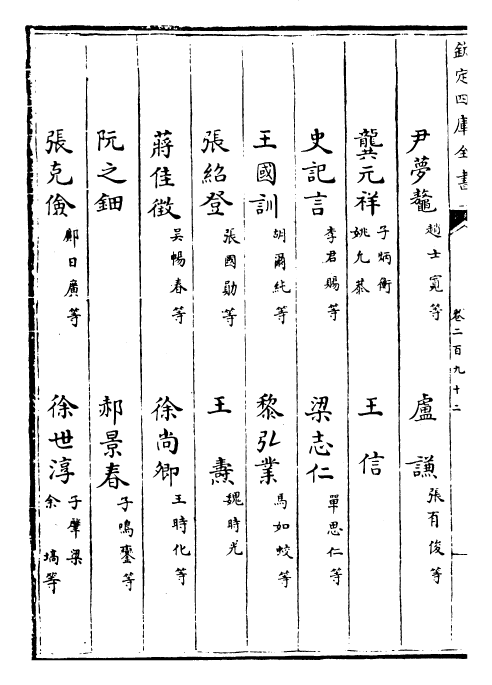 欽定四庫全書
卷二百九十二
尹夢鼇 趙士寬等 盧謙 張有俊等
龔元祥 子炳衡 姚允恭 王信
史記言 李君賜等 梁志仁 單思仁等
王國訓 胡爾純等 黎弘業 馬如蛟等
張紹登 張國勛等 王燾 魏時光
蔣佳徵 吳暢春等 徐尚卿 王時化等
阮之鈿 郝景春 子鳴鑾等
張克儉 鄺曰廣等 徐世淳 子肇梁 余塙等